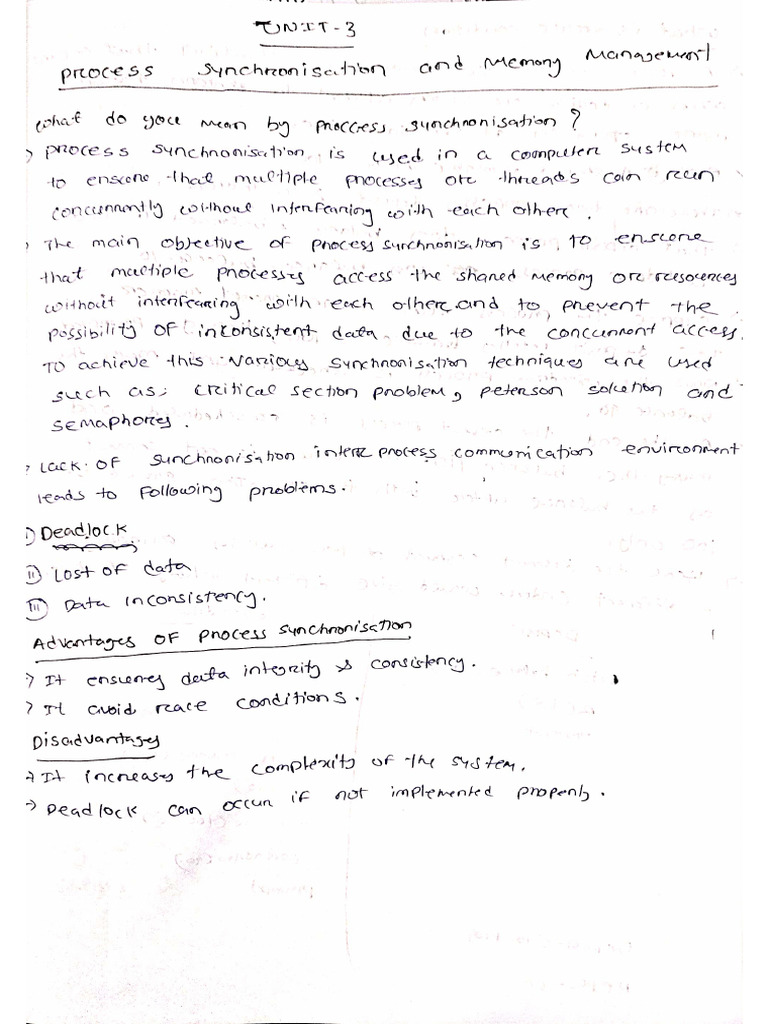 UNIT-3
Process synchronisation and Memory Management
What do you mean by process synchronisation?
> Process synchronisation is used in a computer system
to ensure that multiple processes or threads can run
concurrently without interfearing with each other.
> The main objective of process synchronisation is to ensure
that multiple processes access the shared memory or resources
without interfearing with each other and to prevent the
possibility of inconsistent data due to the concurrent access.
To achieve this various synchronisation techniques are used
such as; critical section problem, peterson solution and
semaphores.
> Lack of synchronisation inter process communication environment
leads to following problems.
i) Deadlock
ii) Lost of data
iii) Data inconsistency.
Advantages of process synchronisation
> It ensures data integrity & consistency.
> It avoid race conditions.
Disadvantages
→ It increases the complexity of the system.
→ Deadlock can occur if not implemented properly.